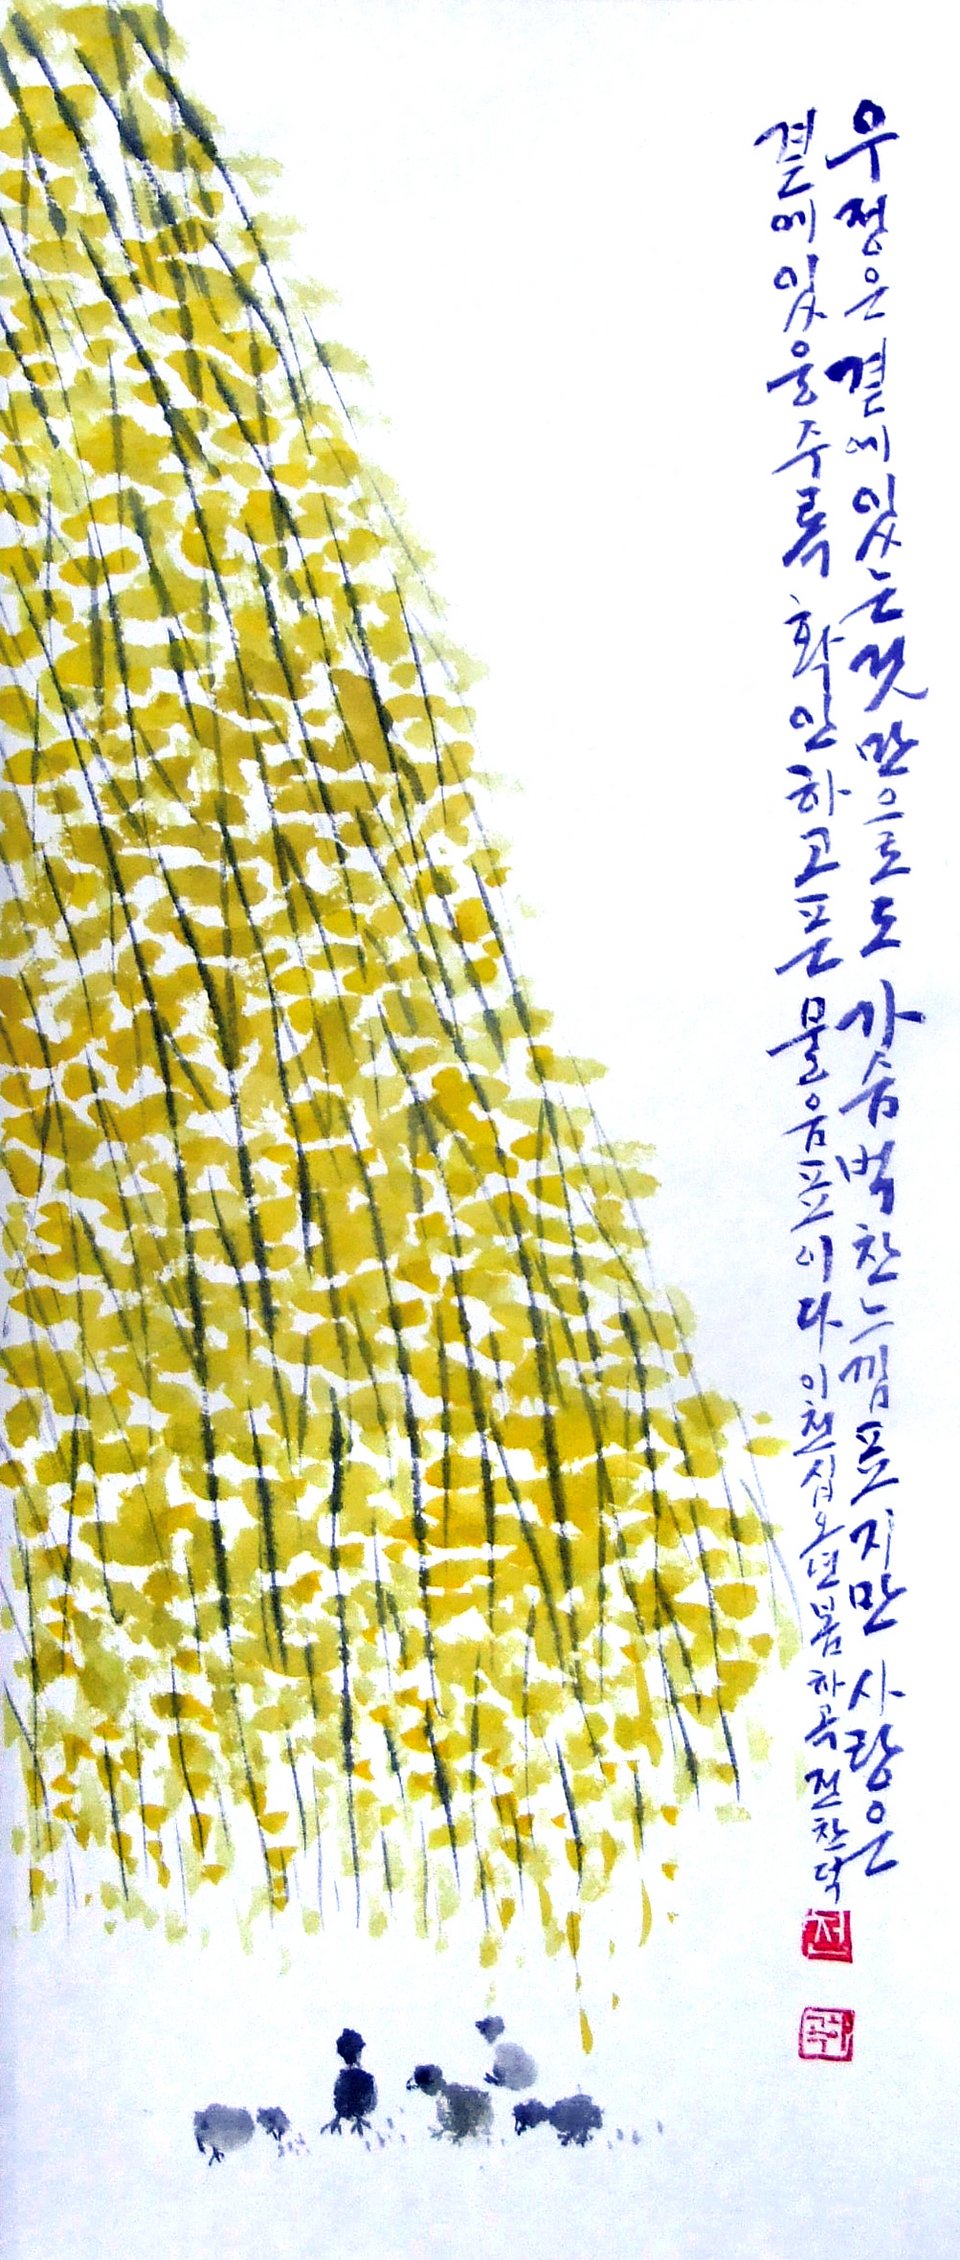 우정은 곁에 있는 것 만으로도 가슴 벅찬 느낌표지만 사랑은
곁에 있을수록 확인하고픈 물음표이다 이천십오년 봄 하곡 전찬덕
전
하곡